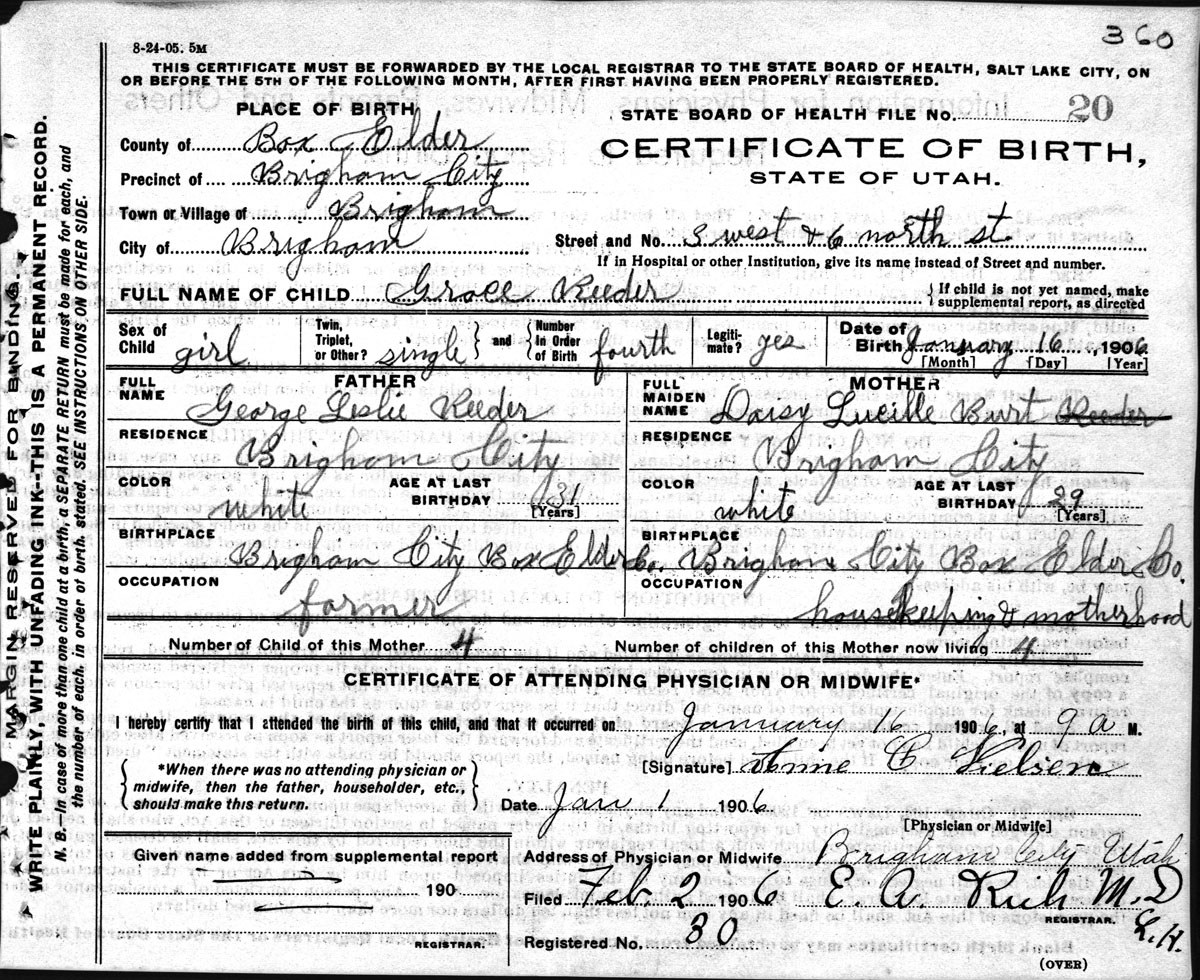 360
8-24-05. 5M
THIS CERTIFICATE MUST BE FORWARDED BY THE LOCAL REGISTRAR TO THE STATE BOARD OF HEALTH, SALT LAKE CITY, ON
OR BEFORE THE 5TH OF THE FOLLOWING MONTH, AFTER FIRST HAVING BEEN PROPERLY REGISTERED.
PLACE OF BIRTH
STATE BOARD OF HEALTH FILE No. 20
County of Box Elder
CERTIFICATE OF BIRTH,
STATE OF UTAH.
Precinct of Brigham City
Town or Village of Brigham
City of Brigham
Street and No. 3 west & 6 north st.
If in Hospital or other Institution, give its name instead of Street and number.
FULL NAME OF CHILD Grace Reeder
{ If child is not yet named, make
supplemental report, as directed
Sex of Child girl
Twin, Triplet, or Other? single } and { Number In Order of Birth fourth
Legiti-mate? yes
Date of Birth January 16, 1906
[Month] [Day] [Year]
FATHER
FULL NAME George Leslie Reeder
MOTHER
FULL MAIDEN NAME Daisy Lucille Burt Reeder
RESIDENCE Brigham City
RESIDENCE Brigham City
COLOR white AGE AT LAST BIRTHDAY 31 [Years]
COLOR white AGE AT LAST BIRTHDAY 29 [Years]
BIRTHPLACE Brigham City Box Elder Co.
BIRTHPLACE Brigham City Box Elder Co.
OCCUPATION farmer
OCCUPATION housekeeping & motherhood
Number of Child of this Mother 4
Number of children of this Mother now living 4
CERTIFICATE OF ATTENDING PHYSICIAN OR MIDWIFE*
I hereby certify that I attended the birth of this child, and that it occurred on January 16 1906, at 9 a M.
{ *When there was no attending physician or
midwife, then the father, householder, etc.,
should make this return. }
[Signature] Anne C Nielsen
Date Jan 1 1906
[Physician or Midwife]
Given name added from supplemental report
190
REGISTRAR.
Address of Physician or Midwife Brigham City Utah
Filed Feb. 2 1906 E. A. Rich M. D
REGISTRAR.
L. H.
Registered No. 30
(OVER)
MARGIN RESERVED FOR BINDING.
WRITE PLAINLY, WITH UNFADING INK--THIS IS A PERMANENT RECORD.
N. B.--In case of more than one child at a birth, a SEPARATE RETURN must be made for each, and
the number of each, in order of birth, stated. SEE INSTRUCTIONS ON OTHER SIDE.